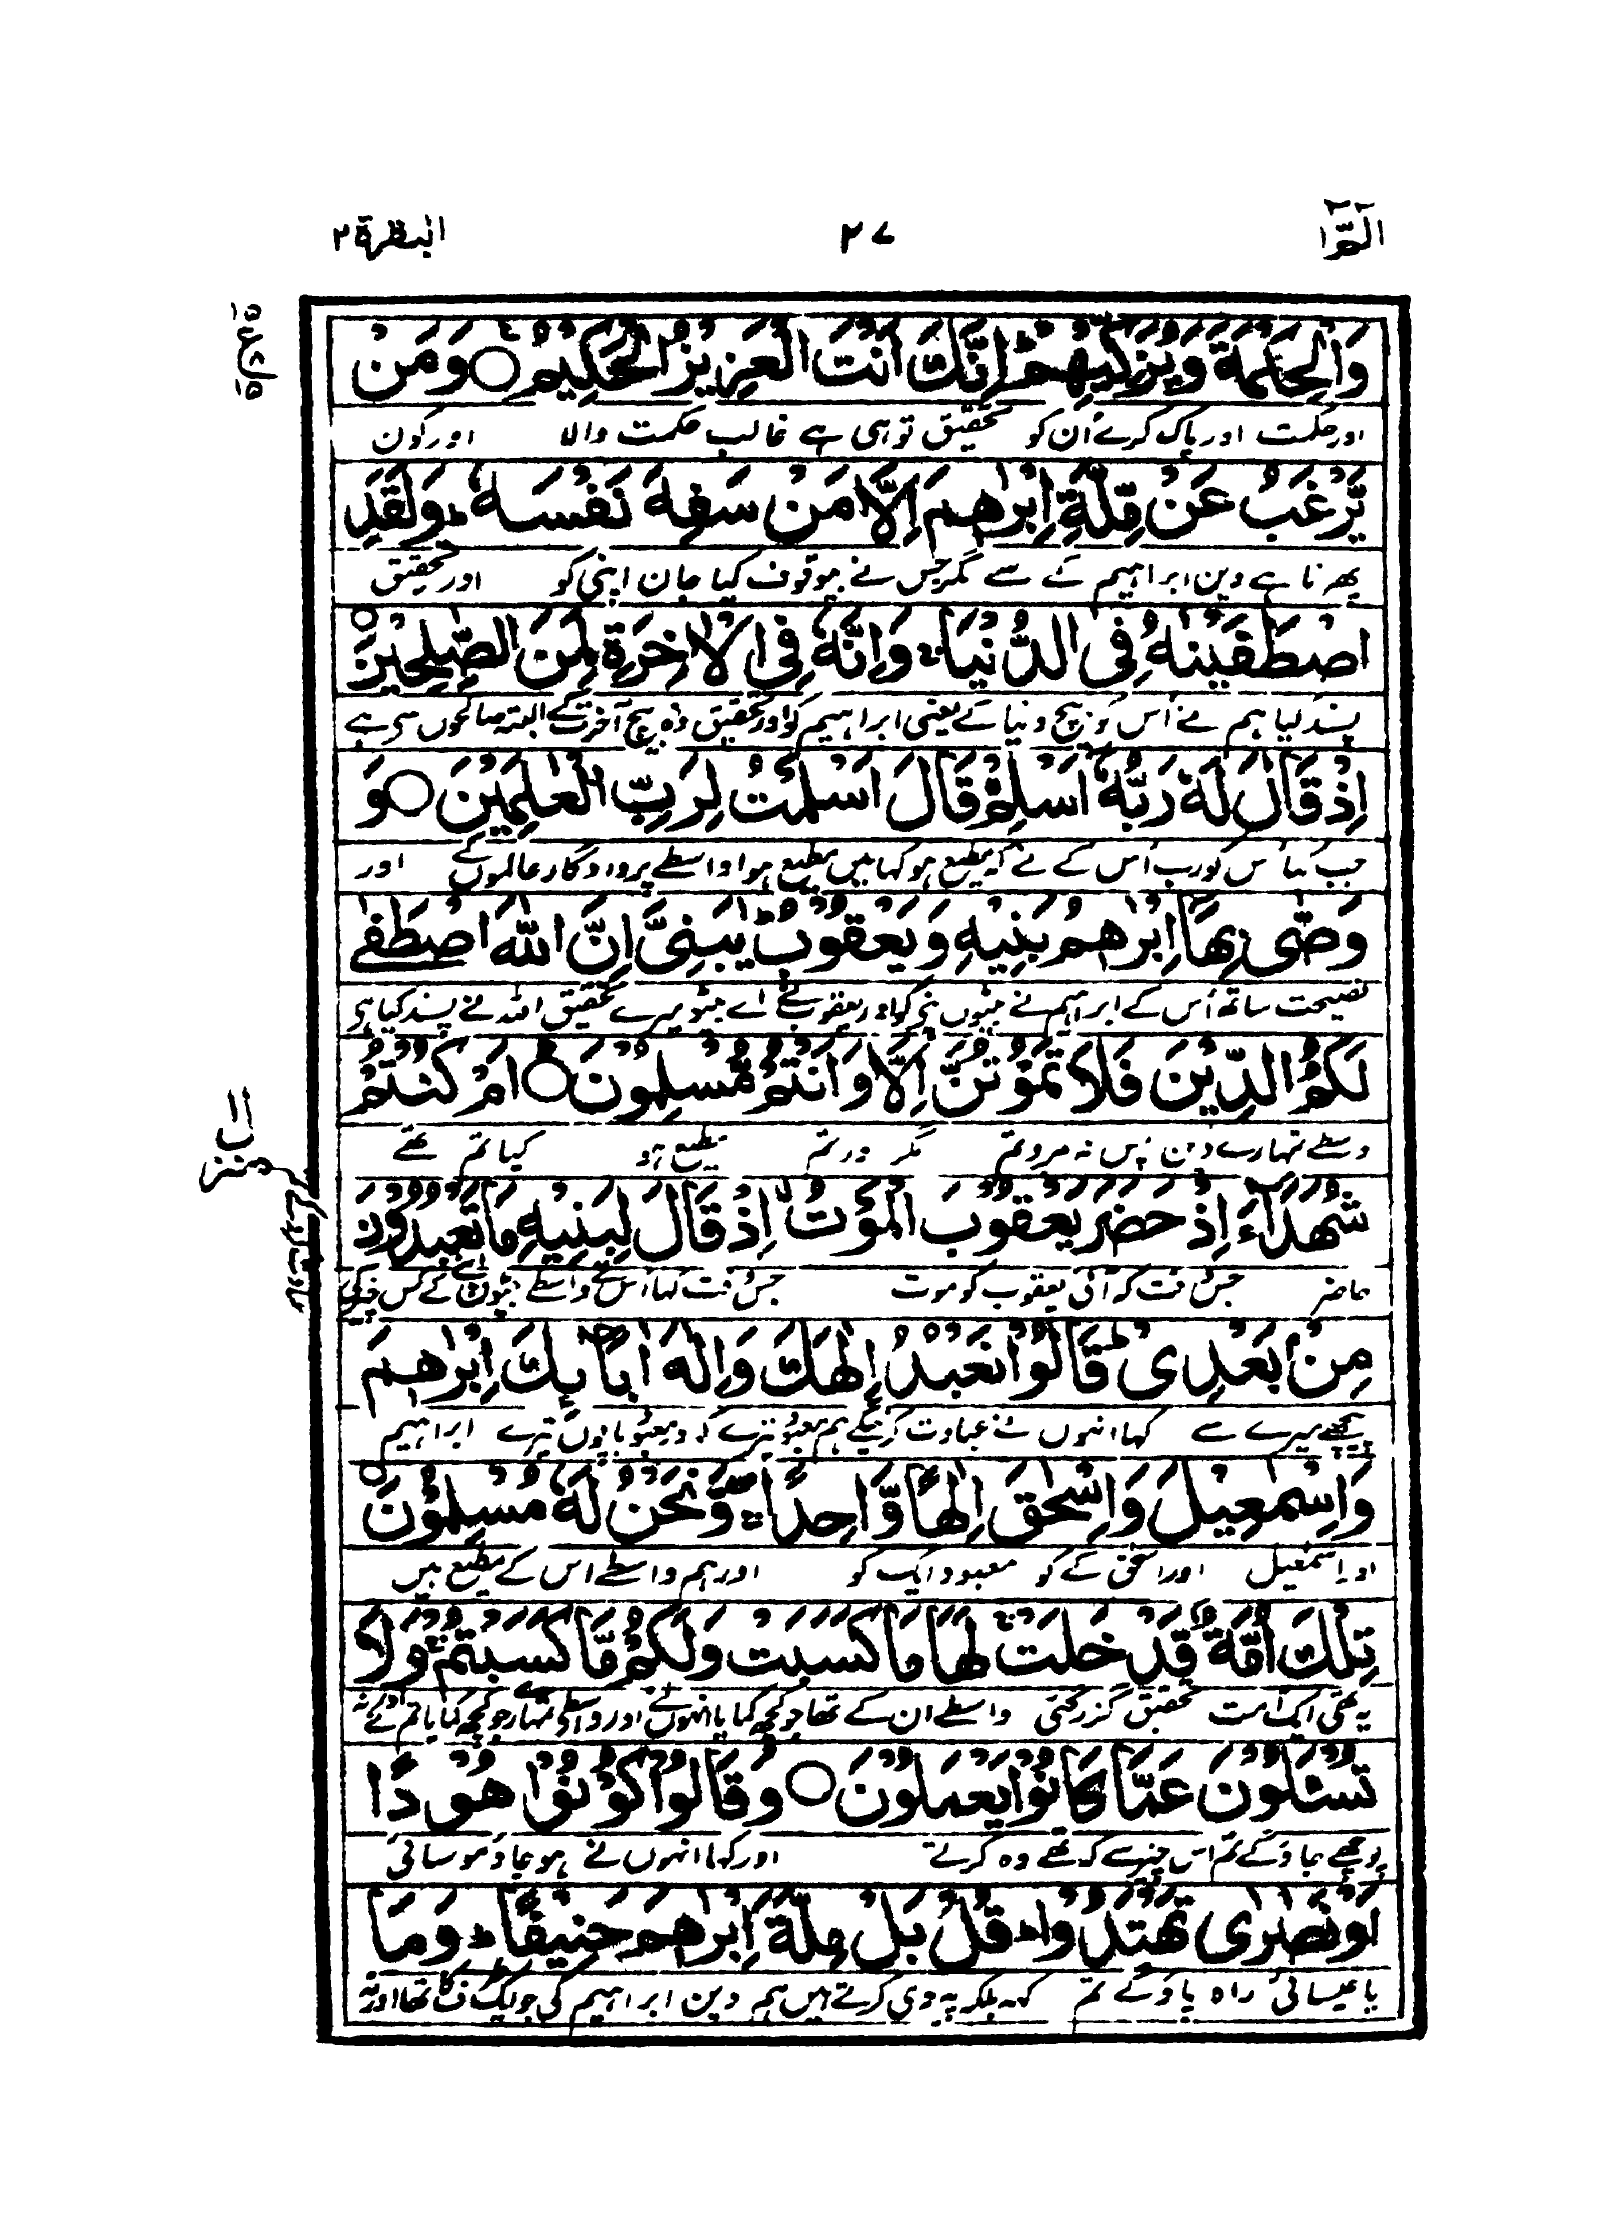 الٓمّٓ ١
٢٧
البقرة ٢
وَالْحِكْمَةَ وَيُزَكِّيْهِمْ ؕ اِنَّكَ اَنْتَ الْعَزِيْزُ الْحَكِيْمُ ○ وَمَنْ
اور حکمت اور پاک کرے اُن کو تحقیق تو ہی ہے غالب حکمت والا اور کون
يَّرْغَبُ عَنْ مِّلَّةِ اِبْرٰهٖمَ اِلَّا مَنْ سَفِهَ نَفْسَهٗ ؕ وَلَقَدِ
پھرتا ہے دین ابراہیم کے سے مگر جس نے بیوقوف کیا جان اپنی کو اور تحقیق
اصْطَفَيْنٰهُ فِى الدُّنْيَا ۚ وَاِنَّهٗ فِى الْاٰخِرَةِ لَمِنَ الصّٰلِحِيْنَ ○
پسند کیا ہم نے اُس کو بیچ دنیا کے یعنی ابراہیم کو اور تحقیق وہ بیچ آخرت کے البتہ صالحوں سے ہے
اِذْ قَالَ لَهٗ رَبُّهٗۤ اَسْلِمْ ۙ قَالَ اَسْلَمْتُ لِرَبِّ الْعٰلَمِيْنَ ○ وَ
جب کہا اس کو رب اُس کے نے کہ مطیع ہو کہا میں مطیع ہوا واسطے پروردگار عالموں کے اور
وَصّٰى بِهَاۤ اِبْرٰهٖمُ بَنِيْهِ وَيَعْقُوْبُ ؕ يٰبَنِىَّ اِنَّ اللّٰهَ اصْطَفٰى
نصیحت ساتھ اُس کے ابراہیم نے بیٹوں اپنی کو اور یعقوب نے اے بیٹو میرے تحقیق اللہ نے پسند کیا ہی
لَكُمُ الدِّيْنَ فَلَا تَمُوْتُنَّ اِلَّا وَاَنْتُمْ مُّسْلِمُوْنَ ○ اَمْ كُنْتُمْ
واسطے تمہارے دین پس نہ مرو تم مگر اور تم مطیع ہو کیا تم تھے
شُهَدَآءَ اِذْ حَضَرَ يَعْقُوْبَ الْمَوْتُ ۙ اِذْ قَالَ لِبَنِيْهِ مَا تَعْبُدُوْنَ
حاضر جس وقت کہ آئی یعقوب کو موت جس وقت کہا اُس نے واسطے بیٹوں اپنے کے کس چیز کی
مِنْۢ بَعْدِىْ ؕ قَالُوْا نَعْبُدُ اِلٰهَكَ وَاِلٰهَ اٰبَآئِكَ اِبْرٰهٖمَ
پیچھے میرے سے کہا انہوں نے عبادت کرینگے ہم معبود تیرے کو اور معبود باپوں تیرے ابراہیم
وَاِسْمٰعِيْلَ وَاِسْحٰقَ اِلٰهًا وَّاحِدًا ۖۚ وَّنَحْنُ لَهٗ مُسْلِمُوْنَ ○
اور اسمٰعیل اور اسحٰق کے کو معبود ایک کو اور ہم واسطے اس کے مطیع ہیں
تِلْكَ اُمَّةٌ قَدْ خَلَتْ ۚ لَهَا مَا كَسَبَتْ وَلَكُمْ مَّا كَسَبْتُمْ ۚ وَلَا
یہ تھی ایک اُمت تحقیق گزر گئی واسطے ان کے تھا جو کچھ کمایا انہوں نے اور واسطے تمہارے جو کچھ کمایا تم نے اور نہ
تُسْئَلُوْنَ عَمَّا كَانُوْا يَعْمَلُوْنَ ○ وَقَالُوْا كُوْنُوْا هُوْدًا
پوچھے جاؤ گے تم اس چیز سے کہ تھے وہ کرتے اور کہا انہوں نے ہو جاؤ موسائی
اَوْ نَصٰرٰى تَهْتَدُوْا ؕ قُلْ بَلْ مِلَّةَ اِبْرٰهٖمَ حَنِيْفًا ؕ وَمَا
یا عیسائی راہ پاؤ گے تم کہہ بلکہ پیروی کرتے ہیں ہم دین ابراہیم کی جو ایک طرف کا تھا اور نہ